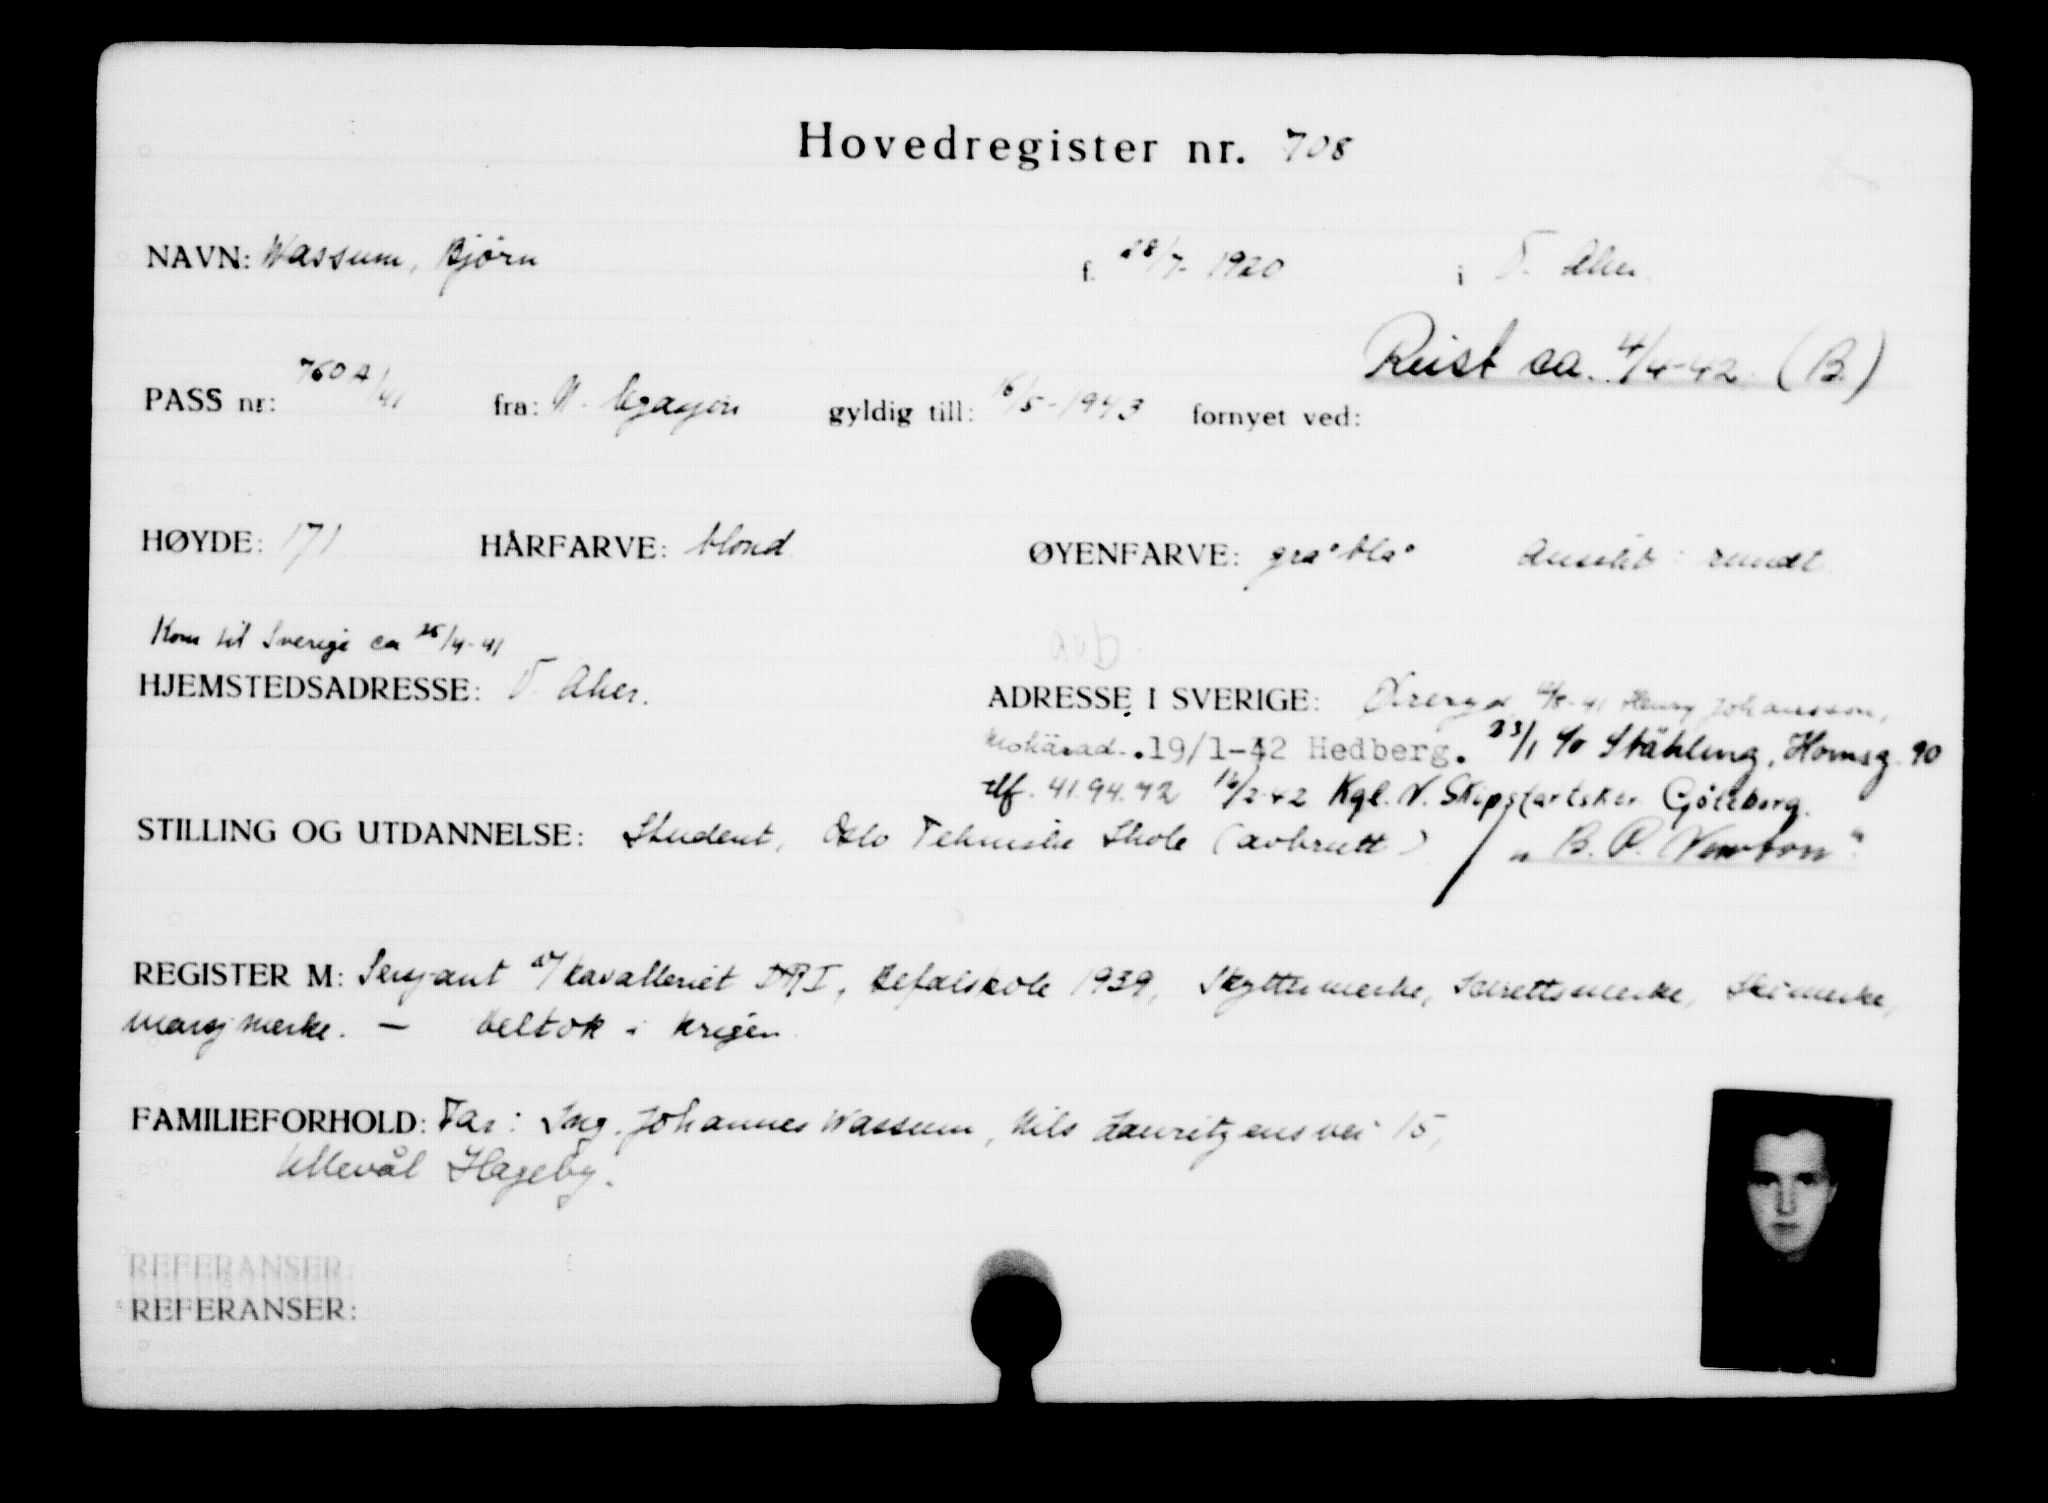 Hovedregister nr. 708
NAVN: Wassum, Bjørn f. 28/7-1920 i V. Aker.
Reist ca. 4/4-42 (B.)
PASS nr: 760A/41 fra: N. legasjon gyldig till: 16/5-1943 fornyet ved:
HØYDE: 171 HÅRFARVE: blond ØYENFARVE: grå blå Ansikt: rundt
Kom til Sverige ca 25/4-41
HJEMSTEDSADRESSE: V. Aker. ADRESSE I SVERIGE: Øreryd 10/8-41 Henry Johansson,
19/1-42 Hedberg. 23/1 c/o Ståhling, Hornsg. 90
tlf. 41.94.72 16/2-42 Kgl. N. Skipsfartskr. Göteborg.
STILLING OG UTDANNELSE: Student, Oslo Tekniske Skole (avbrutt) / "B. P. Newton"
REGISTER M: Sersjant av/kavalleriet DRI, Befalskole 1939, Skyttermerke, Idrettsmerke, Skimerke,
marsjmerke. - Deltok i krigen
FAMILIEFORHOLD: Far: Ing. Johannes Wassum, Nils Lauritzens vei 15,
Ullevål Hageby.
REFERANSER:
REFERANSER: